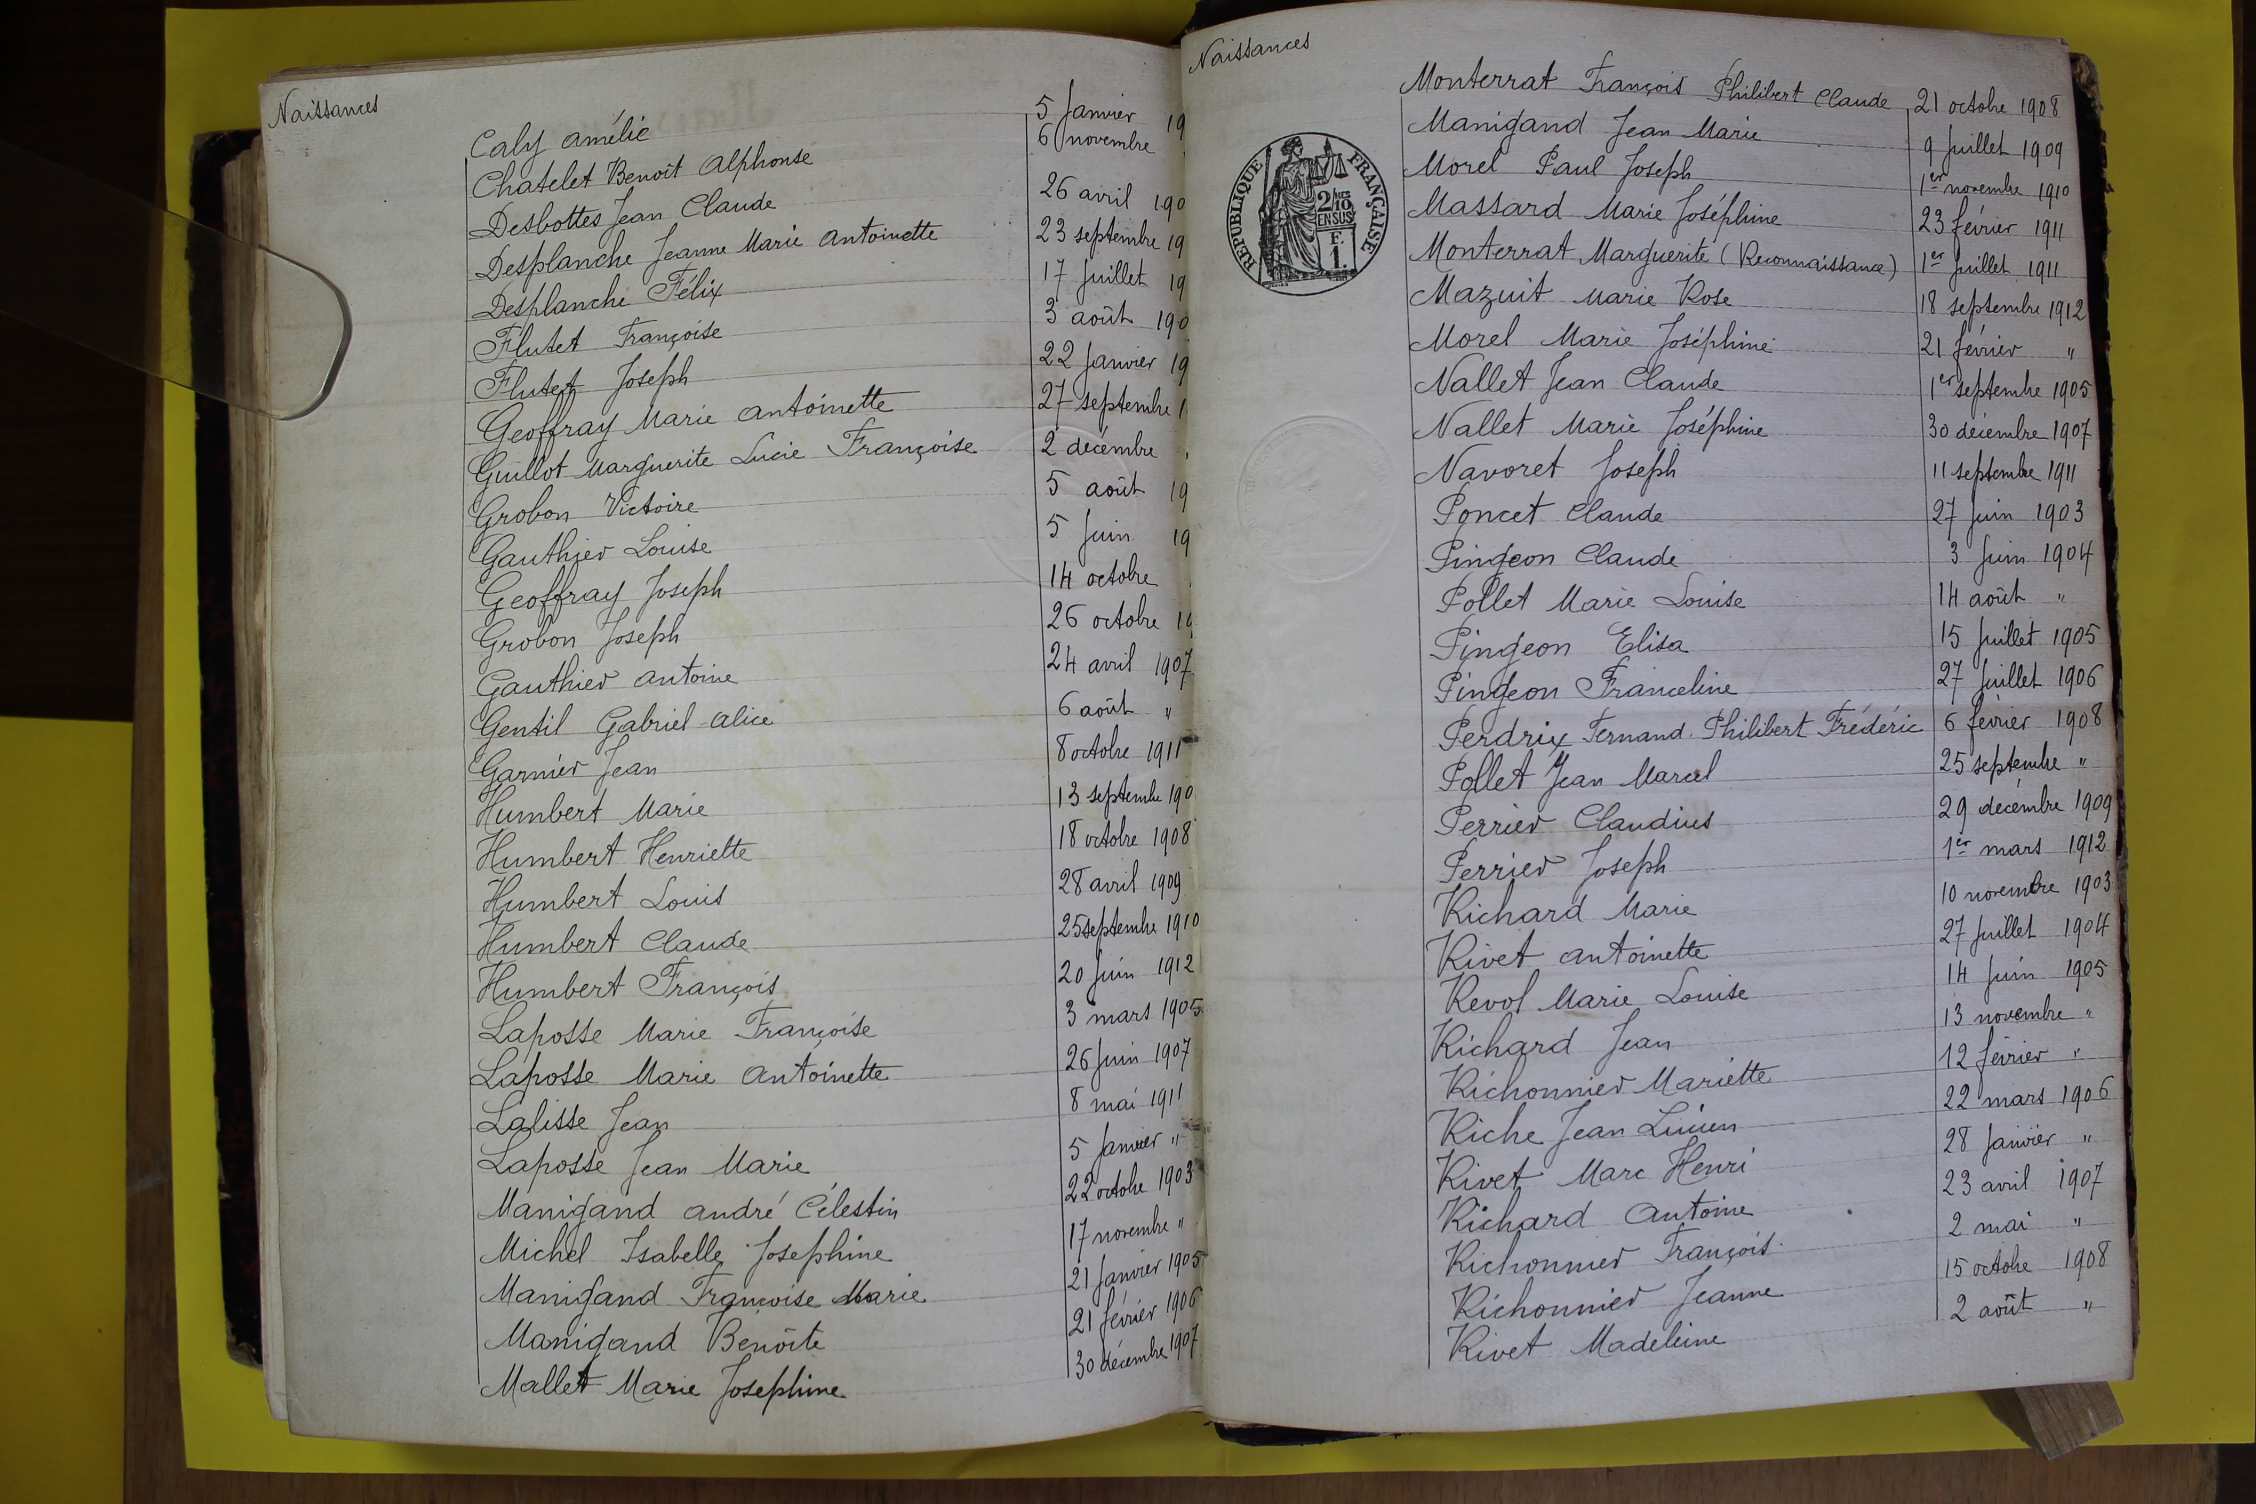 Naissances
Caly Amélie 5 Janvier 19
Chatelet Benoît Alphonse 6 novembre
Desbottes Jean Claude 26 avril 190
Desplanche Jeanne Marie Antoinette 23 septembre 19
Desplanche Félix 17 Juillet 19
Flutet Françoise 3 août 190
Flutet Joseph 22 Janvier 19
Geoffray Marie Antoinette 27 septembre 1
Guillot Marguerite Lucie Françoise 2 décembre
Grobon Victoire 5 août 19
Gauthier Louise 5 Juin 19
Geoffray Joseph 14 octobre
Grobon Joseph 26 octobre 19
Gauthier Antoine 24 avril 1907
Gentil Gabriel Alice 6 août "
Garnier Jean 8 octobre 1911
Humbert Marie 13 septembre 190
Humbert Henriette 18 octobre 1908
Humbert Louis 28 avril 1909
Humbert Claude 25 septembre 1910
Humbert François 20 Juin 1912
Laposse Marie Françoise 3 mars 1905
Laposse Marie Antoinette 26 Juin 1907
Lalisse Jean 8 mai 1911
Laposse Jean Marie 5 Janvier "
Manigand André Célestin 22 octobre 1903
Michel Isabelle Josephine 17 novembre "
Manigand Françoise Marie 21 Janvier 1905
Manigand Benoîte 21 février 1906
Mallet Marie Josephine 30 décembre 1907
Naissances
RÉPUBLIQUE FRANÇAISE
2/10 EN SUS
F. 1.
Monterrat François Philibert Claude 21 octobre 1908
Manigand Jean Marie 9 Juillet 1909
Morel Paul Joseph 1er novembre 1910
Massard Marie Joséphine 23 février 1911
Monterrat Marguerite (Reconnaissance) 1er Juillet 1911
Mazuit Marie Rose 18 septembre 1912
Morel Marie Joséphine 21 février "
Nallet Jean Claude 1er septembre 1905
Nallet Marie Joséphine 30 décembre 1907
Navoret Joseph 11 septembre 1911
Poncet Claude 27 Juin 1903
Pingeon Claude 3 Juin 1904
Pollet Marie Louise 14 août "
Pingeon Elisa 15 Juillet 1905
Pingeon Franceline 27 Juillet 1906
Perdrix Fernand Philibert Frédéric 6 février 1908
Pollet Jean Marcel 25 septembre "
Perrier Claudius 29 décembre 1909
Perrier Joseph 1er mars 1912
Richard Marie 10 novembre 1903
Rivet Antoinette 27 Juillet 1904
Revol Marie Louise 14 Juin 1905
Richard Jean 13 novembre "
Richonnier Mariette 12 février "
Riche Jean Lucien 22 mars 1906
Rivet Marc Henri 28 Janvier "
Richard Antoine 23 avril 1907
Richonnier François 2 mai "
Richonnier Jeanne 15 octobre 1908
Rivet Madeleine 2 août "